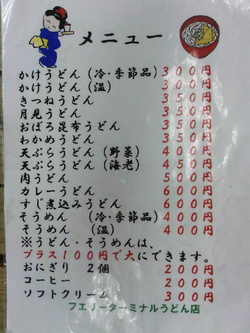 メニュー
かけうどん(冷・季節品)300円
かけうどん(温) 300円
きつねうどん 350円
月見うどん 350円
おぼろ昆布うどん 350円
わかめうどん 350円
天ぷらうどん(野菜)400円
天ぷらうどん(海老)450円
肉うどん 500円
カレーうどん 600円
すじ煮込みうどん 600円
そうめん (冷・季節品)400円
そうめん (温) 400円
※うどん・そうめんは、
プラス100円で大にできます。
おにぎり 2個 200円
コーヒー 200円
ソフトクリーム 300円
フエリーターミナルうどん店